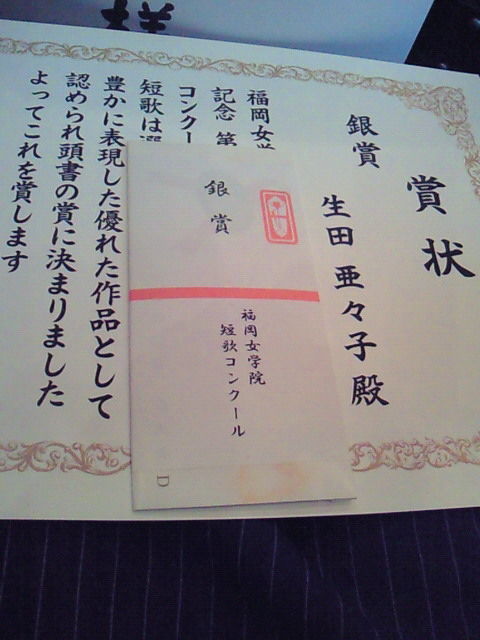 様
賞状
銀賞
生田 亜々子 殿
福岡女学
記念 第
コンクー
短歌は
豊かに表現した優れた作品として
認められ頭書の賞に決まりました
よってこれを賞します
銀賞
福岡女学院
短歌コンクール
D